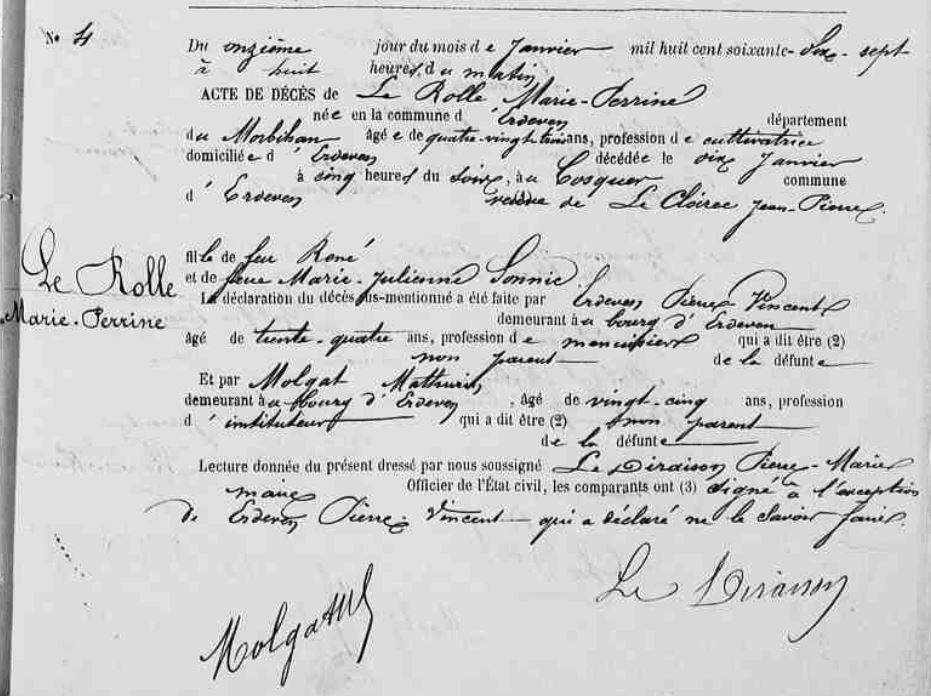 No 4
Du onzième jour du mois de Janvier mil huit cent soixante-dix-sept
à huit heures du matin
ACTE DE DÉCÈS de Le Rolle Marie-Perrine
née en la commune d'Erdeven département
du Morbihan âgée de quatre-vingt-trois ans, profession de cultivatrice
domiciliée d'Erdeven décédée le dix Janvier
à cinq heures du soir, à u Cosquer commune
d'Erdeven veuve de Le Cloirec Jean-Pierre.
Le Rolle
Marie-Perrine
fille de feu René
et de feue Marie-Julienne Sonnic.
La déclaration du décès sus-mentionné a été faite par Erdeven Pierre-Vincent
demeurant au bourg d'Erdeven
âgé de trente-quatre ans, profession de menuisier qui a dit être (2)
non parent de la défunte
Et par Molgat Mathurin
demeurant au bourg d'Erdeven, âgé de vingt-cinq ans, profession
d'instituteur qui a dit être (2) non parent
de la défunte
Lecture donnée du présent dressé par nous soussigné Le Diraison Pierre-Marie
maire Officier de l'État civil, les comparants ont (3) signé à l'exception
de Erdeven Pierre-Vincent qui a déclaré ne le savoir faire.
Le Diraison
Molgat